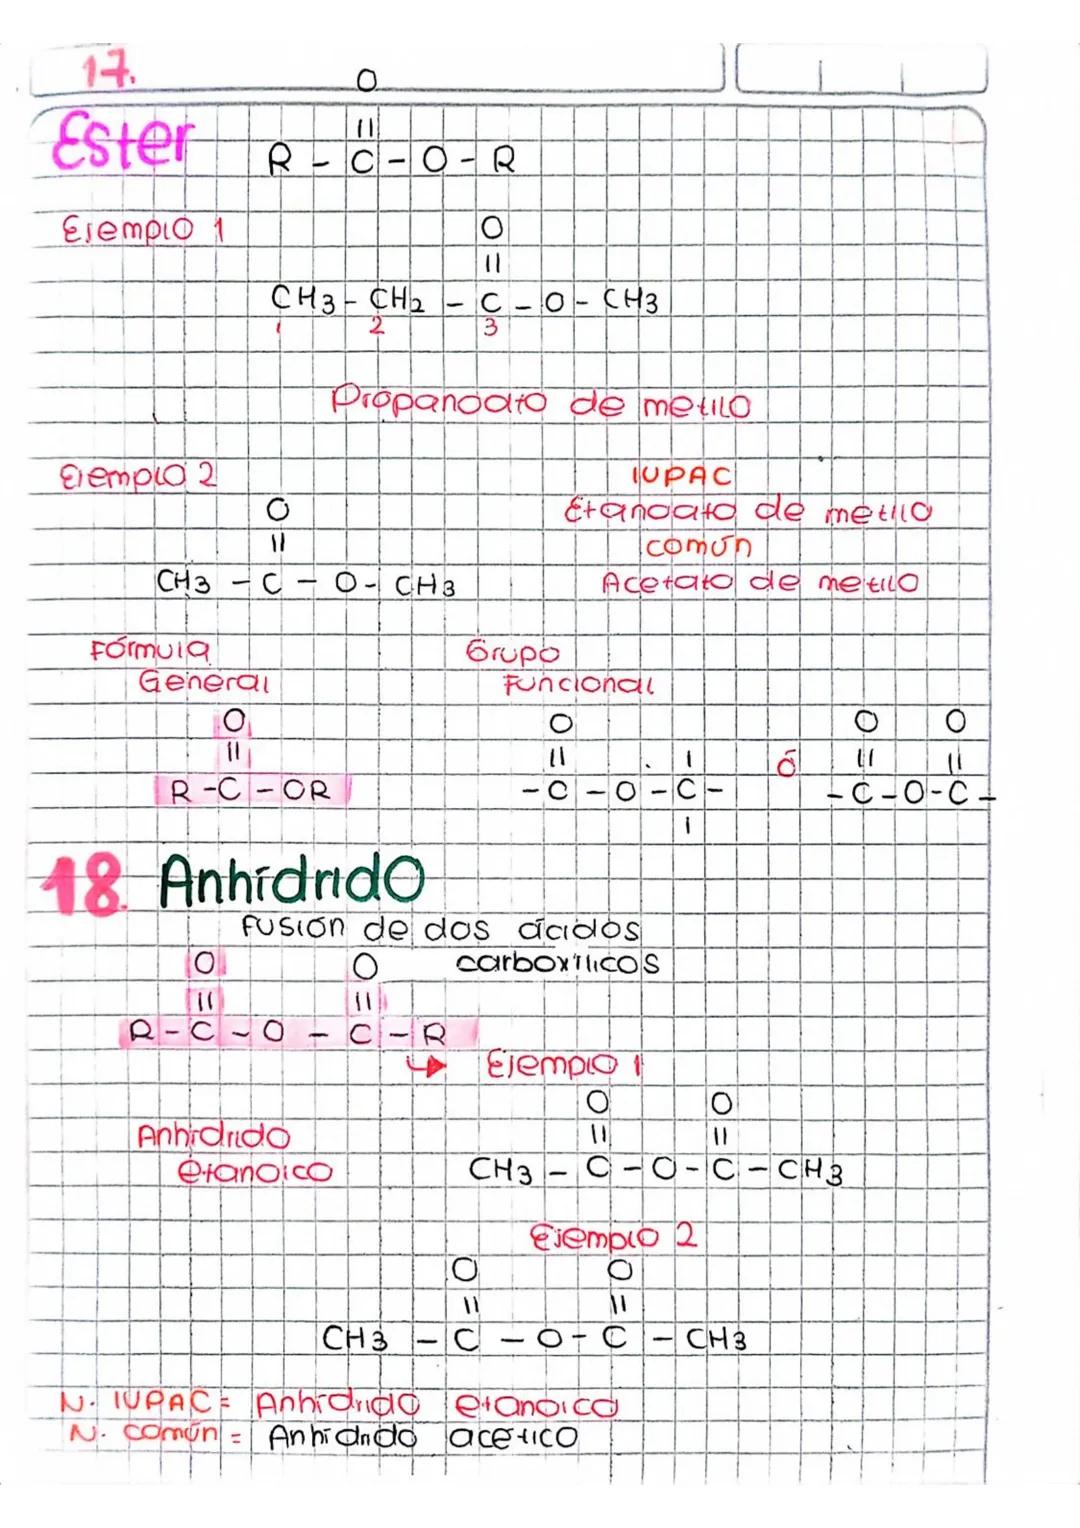 17.
O
Ester
||
R - C - O - R
Ejemplo 1
O
||
CH3 - CH2 - C - O - CH3
1 2 3
Propanoato de metilo
Ejemplo 2
IUPAC
O
Etanoato de metilo
||
común
CH3 - C - O - CH3
Acetato de metilo
Fórmula
Grupo
General
Funcional
O O O O
|| || | ó || ||
R - C - OR - C - O - C - - C - O - C -
|
18. Anhídrido
Fusión de dos ácidos
O O carboxílicos
|| ||
R - C - O - C - R
Ejemplo 1
O O
Anhídrido || ||
etanoico CH3 - C - O - C - CH3
Ejemplo 2
O O
|| ||
CH3 - C - O - C - CH3
N. IUPAC = Anhídrido etanoico
N. común = Anhídrido acético